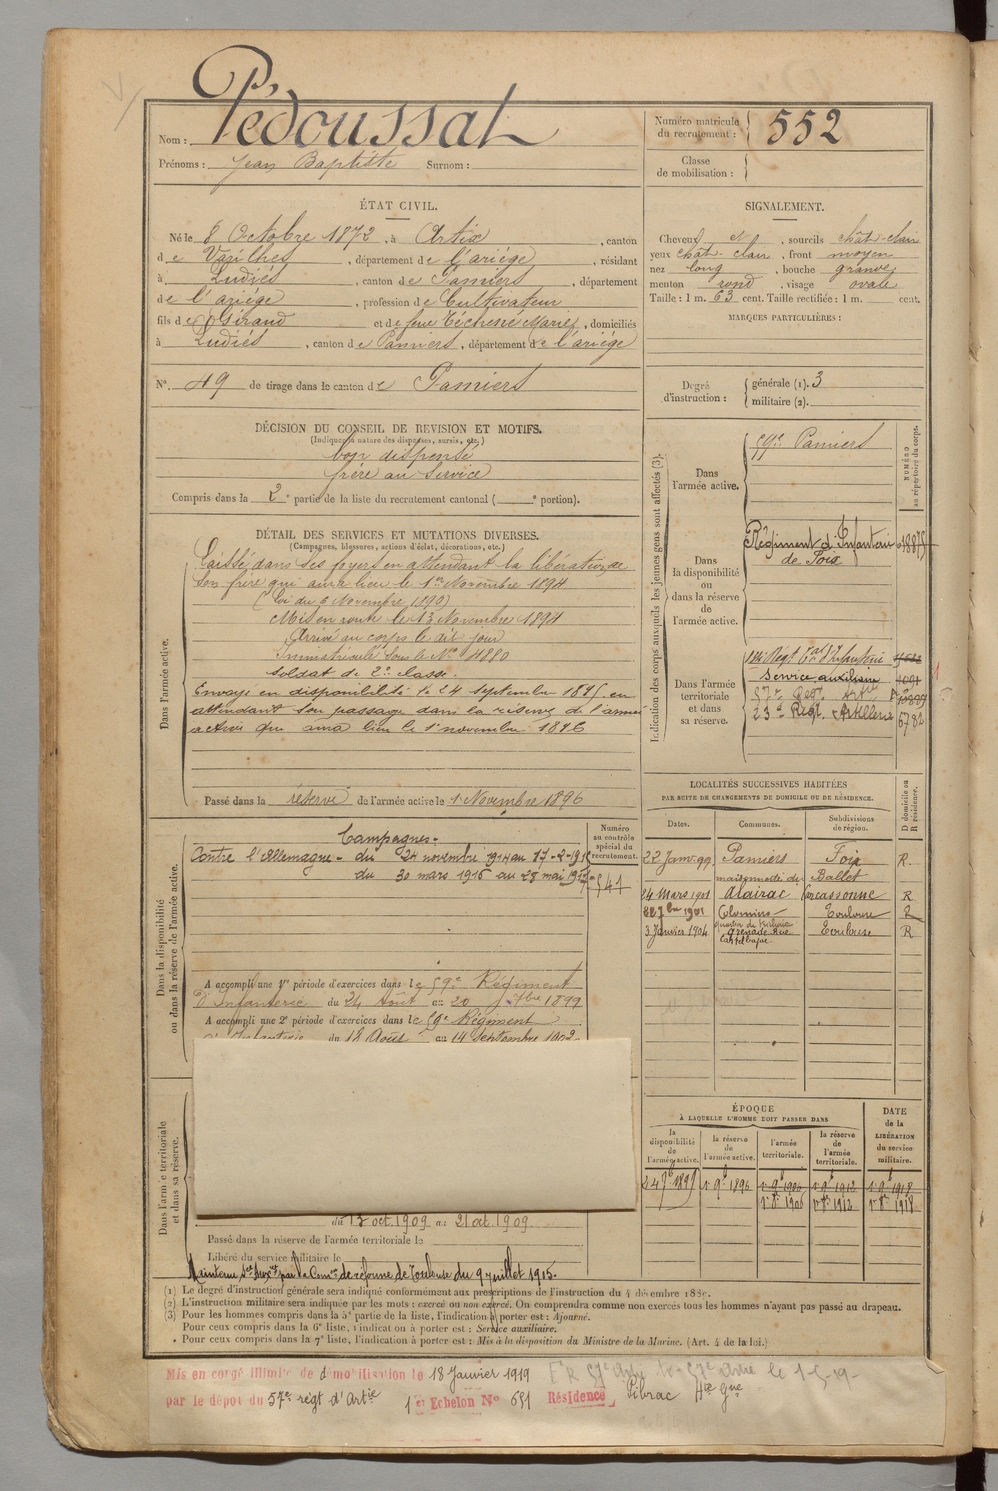 Nom : Pédoussat
Prénoms : Jean Baptiste Surnom :
Numéro matricule du recrutement : 552
Classe de mobilisation :
ÉTAT CIVIL.
Né le 8 Octobre 1872, à Artix, canton
de Varilhes, département de l'ariége, résidant
à Ludiés, canton de Pamiers, département
de l'ariége, profession de Cultivateur
fils de Giraud et de feue Téchené Marie, domiciliés
à Ludiés, canton de Pamiers, département de l'ariége
N° 49 de tirage dans le canton de Pamiers
SIGNALEMENT.
Cheveux et, sourcils chât-clair
yeux chât. clair, front moyen
nez long, bouche grande,
menton rond, visage ovale
Taille : 1 m. 63 cent. Taille rectifiée : 1 m. cent.
MARQUES PARTICULIÈRES :
Degré d'instruction : générale (1). 3
militaire (2).
DÉCISION DU CONSEIL DE REVISION ET MOTIFS.
(Indiquer la nature des dispenses, sursis, etc.)
bon dispensé
frère au service
Compris dans la 2e partie de la liste du recrutement cantonal ( e portion).
DÉTAIL DES SERVICES ET MUTATIONS DIVERSES.
(Campagnes, blessures, actions d'éclat, décorations, etc.)
Dans l'armée active.
Laissé dans ses foyers en attendant la libération de
son frère qui aura lieu le 1er Novembre 1894
(Loi du 6 Novembre 1890)
Mis en route le 13 Novembre 1894
Arrivé au corps le dit jour
Immatriculé sous le N° 4880
soldat de 2e classe.
Envoyé en disponibilité le 24 septembre 1895 en
attendant son passage dans la réserve de l'armée
active qui aura lieu le 1er novembre 1896
Passé dans la réserve de l'armée active le 1er Novembre 1896
Indication des corps auxquels les jeunes gens sont affectés (3).
NUMÉRO au répertoire du corps.
Dans l'armée active.
59e Pamiers
Dans la disponibilité ou dans la réserve de l'armée active.
Régiment d'Infanterie
de Foix
Dans l'armée territoriale et dans sa réserve.
Régt Tal d'Infanterie
Service auxiliaire
57e Régt Artie
23e Régt Artillerie 6782
Dans la disponibilité ou dans la réserve de l'armée active.
Campagnes.
Contre l'Allemagne - du 24 novembre 1914 au 17-2-1915
du 30 mars 1915 au 28 mai
Numéro au contrôle spécial du recrutement.
541
A accompli une 1re période d'exercices dans le 59e Régiment
d'Infanterie du 24 Août au 20 7bre 1899
A accompli une 2e période d'exercices dans le 59e Régiment
d'Infanterie du 18 Août au 14 Septembre 1902
LOCALITÉS SUCCESSIVES HABITÉES
PAR SUITE DE CHANGEMENTS DE DOMICILE OU DE RÉSIDENCE.
D domicile ou R résidence.
Dates. Communes. Subdivisions de région.
22 Janv. 99 Pamiers Foix R.
maisonnette de Ballet
24 Mars 1901 Alairac Carcassonne R
1901 Colomiers Toulouse R
3 Janvier 1904 Grenade Rue Castelbajac Toulouse R
Dans l'armée territoriale et dans sa réserve.
ÉPOQUE
À LAQUELLE L'HOMME DOIT PASSER DANS
DATE de la LIBÉRATION du service militaire.
la disponibilité de l'armée active. la réserve de l'armée active. l'armée territoriale. la réserve de l'armée territoriale.
24 7b 1895 1er 9b 1896 1er 9b 1906 1er 9b 1912 1er 9b 1918
1er 8b 1906 1er 8b 1912 1er 8b 1918
du 13 oct. 1909 au 21 oct. 1909
Passé dans la réserve de l'armée territoriale le
Libéré du service militaire le
Maintenu Sce Auxre par la Comon de réforme de Toulouse du 9 juillet 1915.
(1) Le degré d'instruction générale sera indiqué conformément aux prescriptions de l'instruction du 4 décembre 1889.
(2) L'instruction militaire sera indiquée par les mots : exercé ou non exercé. On comprendra comme non exercés tous les hommes n'ayant pas passé au drapeau.
(3) Pour les hommes compris dans la 5e partie de la liste, l'indication à porter est : Ajourné.
Pour ceux compris dans la 6e liste, l'indication à porter est : Service auxiliaire.
Pour ceux compris dans la 7e liste, l'indication à porter est : Mis à la disposition du Ministre de la Marine. (Art. 4 de la loi.)
Mis en congé illimité de démobilisation le 18 Janvier 1919
par le dépôt du 57e régt d'Artie 1er Echelon N° 651 Résidence Pibrac Hte Gne